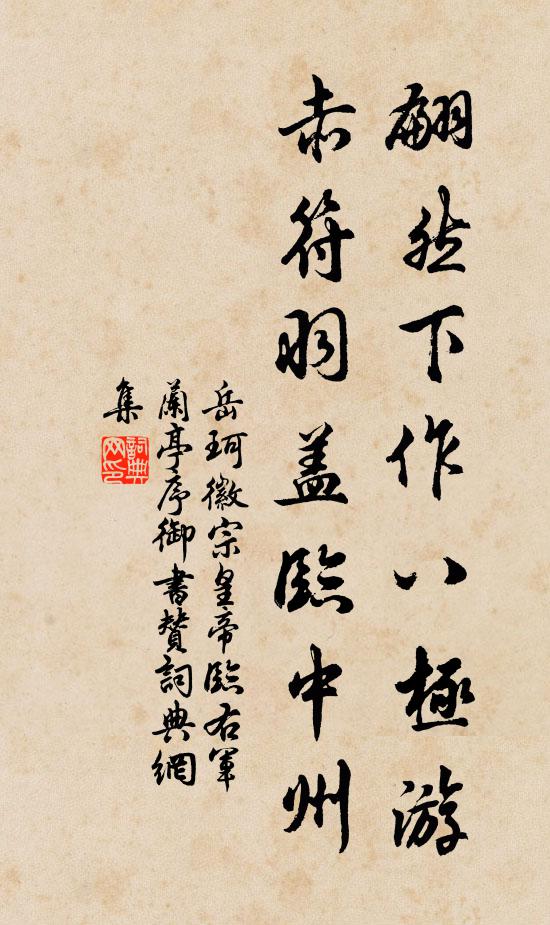 翩然下作八極游
赤符羽蓋臨中州
岳珂徽宗皇帝臨右軍
蘭亭序御書贊詞典網
集
詞典網印